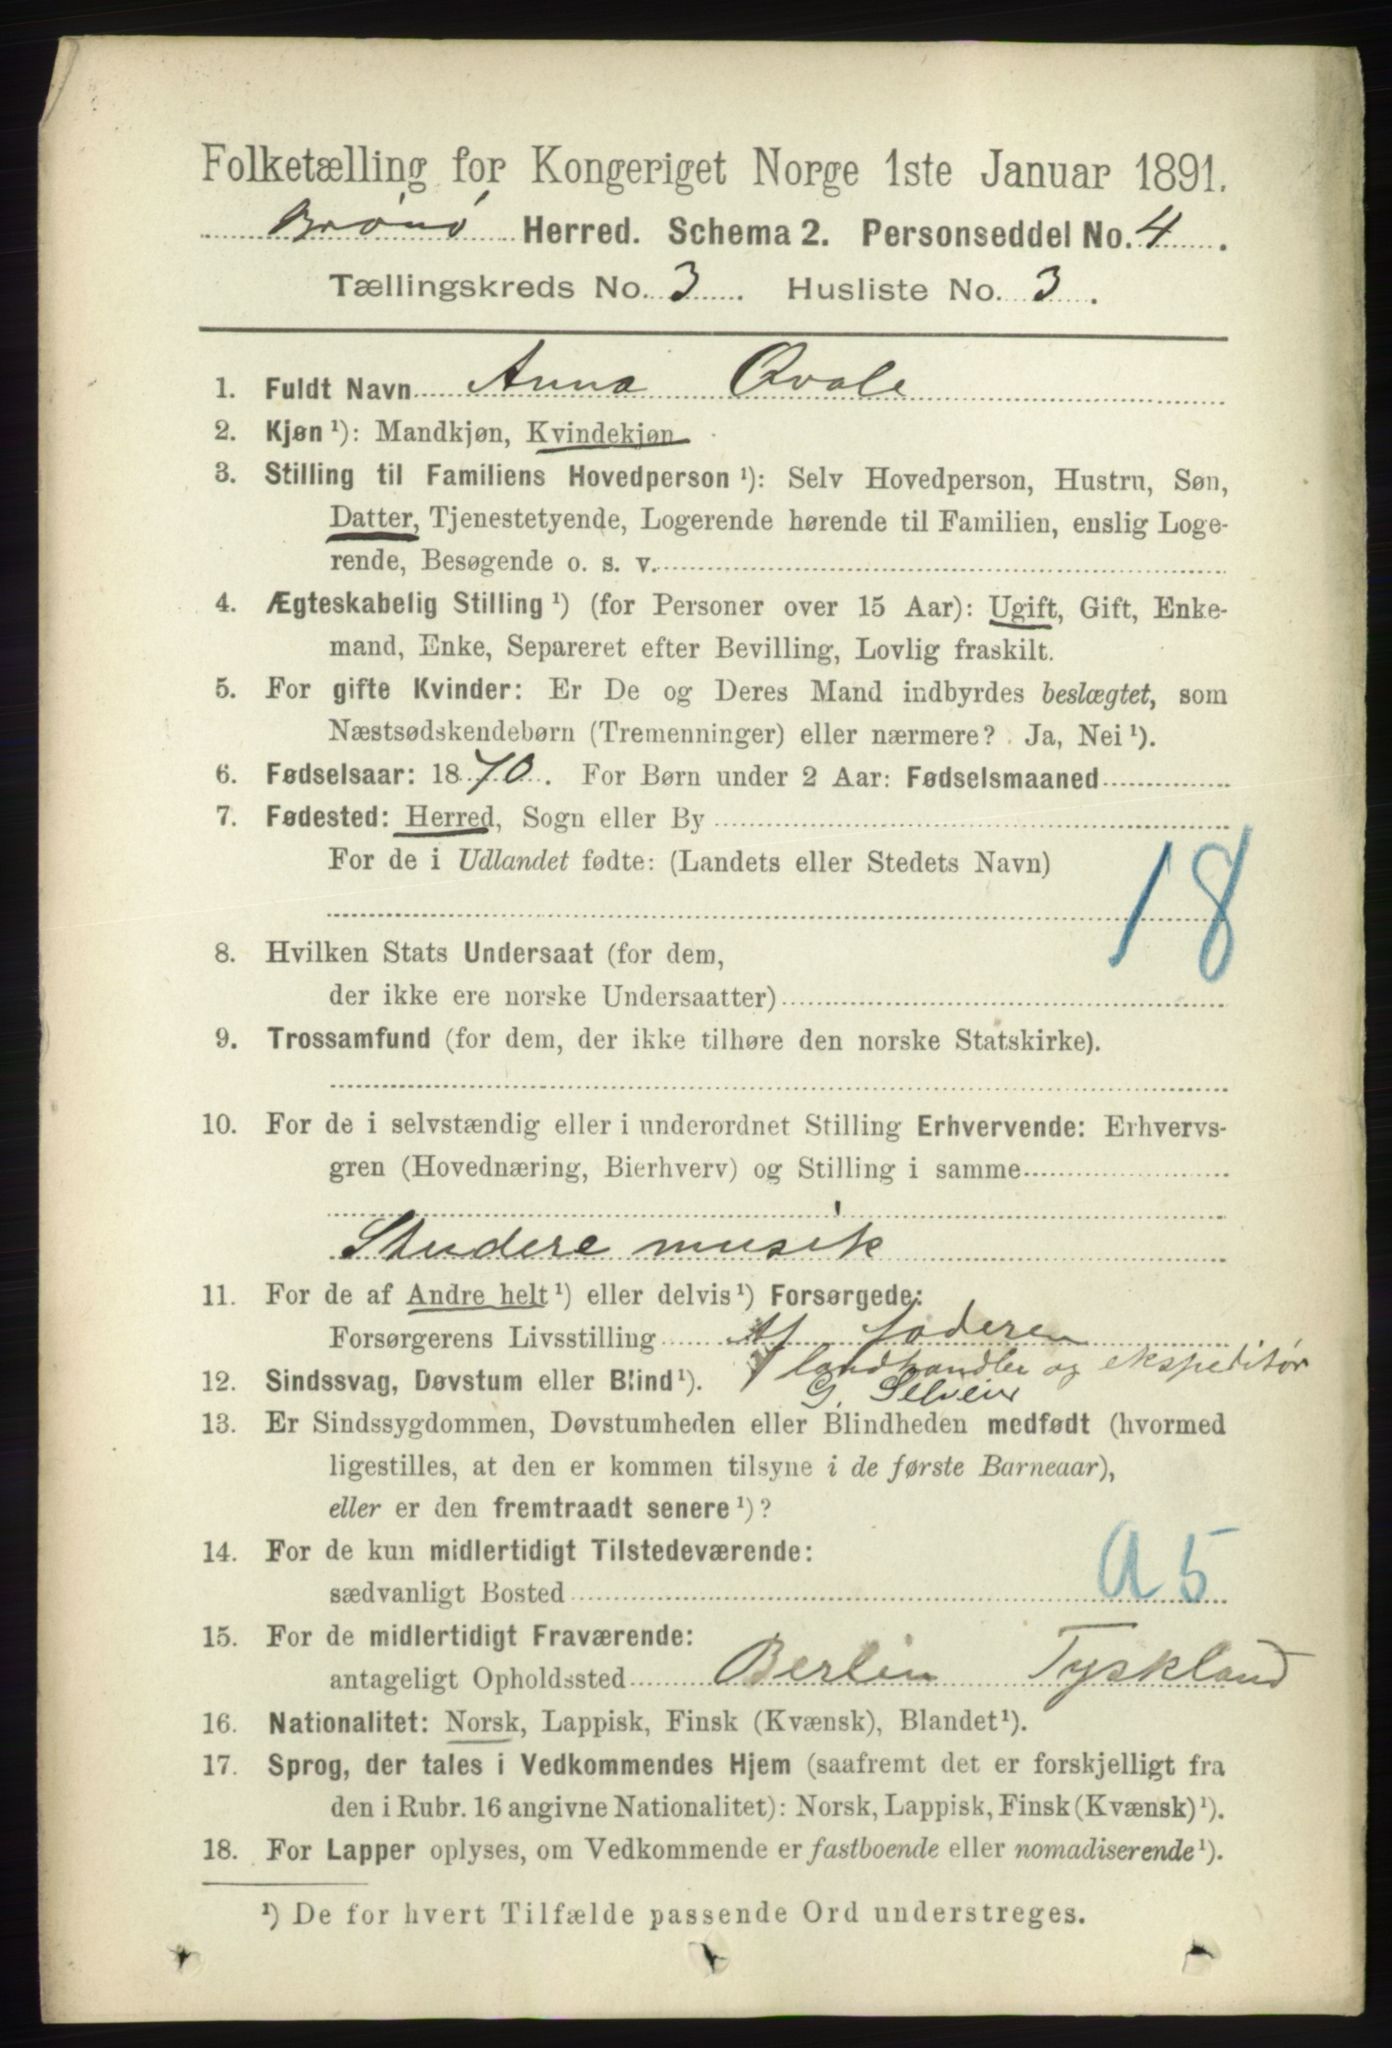 Folketælling for Kongeriget Norge 1ste Januar 1891.
Brønø Herred. Schema 2. Personseddel No. 4.
Tællingskreds No. 3. Husliste No. 3.
1. Fuldt Navn Anna Qvale
2. Kjøn ¹): Mandkjøn, Kvindekjøn
3. Stilling til Familiens Hovedperson ¹): Selv Hovedperson, Hustru, Søn,
Datter, Tjenestetyende, Logerende hørende til Familien, enslig Loge-
rende, Besøgende o. s. v.
4. Ægteskabelig Stilling ¹) (for Personer over 15 Aar): Ugift, Gift, Enke-
mand, Enke, Separeret efter Bevilling, Lovlig fraskilt.
5. For gifte Kvinder: Er De og Deres Mand indbyrdes beslægtet, som
Næstsødskendebørn (Tremenninger) eller nærmere? Ja, Nei ¹).
6. Fødselsaar: 1870. For Børn under 2 Aar: Fødselsmaaned
7. Fødested: Herred, Sogn eller By
For de i Udlandet fødte: (Landets eller Stedets Navn)
18
8. Hvilken Stats Undersaat (for dem,
der ikke ere norske Undersaatter)
9. Trossamfund (for dem, der ikke tilhøre den norske Statskirke).
10. For de i selvstændig eller i underordnet Stilling Erhvervende: Erhvervs-
gren (Hovednæring, Bierhverv) og Stilling i samme
Studere musik
11. For de af Andre helt ¹) eller delvis ¹) Forsørgede:
Forsørgerens Livsstilling Af faderen
landhandler og ekspeditør
12. Sindssvag, Døvstum eller Blind ¹).
13. Er Sindssygdommen, Døvstumheden eller Blindheden medfødt (hvormed
ligestilles, at den er kommen tilsyne i de første Barneaar),
eller er den fremtraadt senere ¹)?
14. For de kun midlertidigt Tilstedeværende:
sædvanligt Bosted
a 5
15. For de midlertidigt Fraværende:
antageligt Opholdssted Berlin Tyskland
16. Nationalitet: Norsk, Lappisk, Finsk (Kvænsk), Blandet ¹).
17. Sprog, der tales i Vedkommendes Hjem (saafremt det er forskjelligt fra
den i Rubr. 16 angivne Nationalitet): Norsk, Lappisk, Finsk (Kvænsk) ¹).
18. For Lapper oplyses, om Vedkommende er fastboende eller nomadiserende ¹).
¹) De for hvert Tilfælde passende Ord understreges.